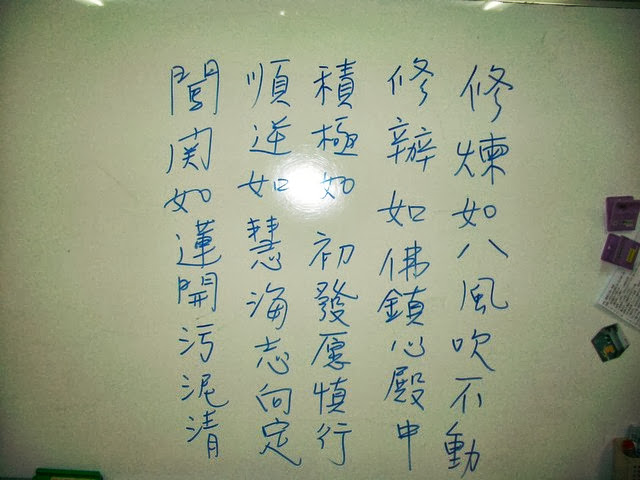 修煉如八風吹不動
修辦如佛鎮心殿中
積極如初發愿慎行
順逆如慧海志向定
闖関如蓮開污泥清